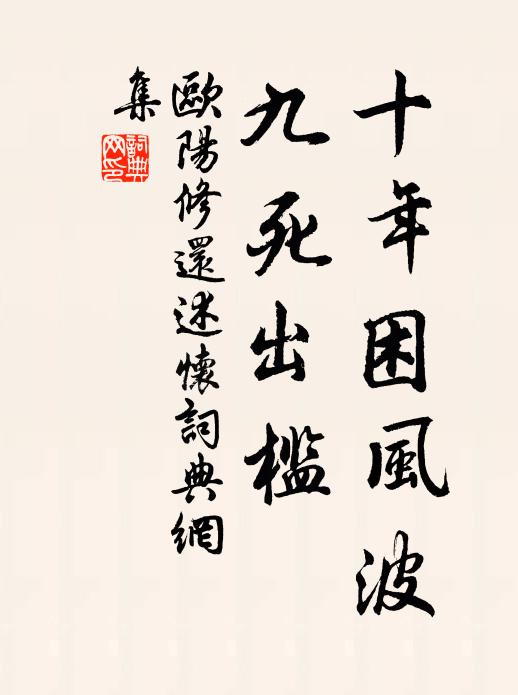 十年困風波
九死出檻
歐陽修還述懷詞典網
集
詞典網印